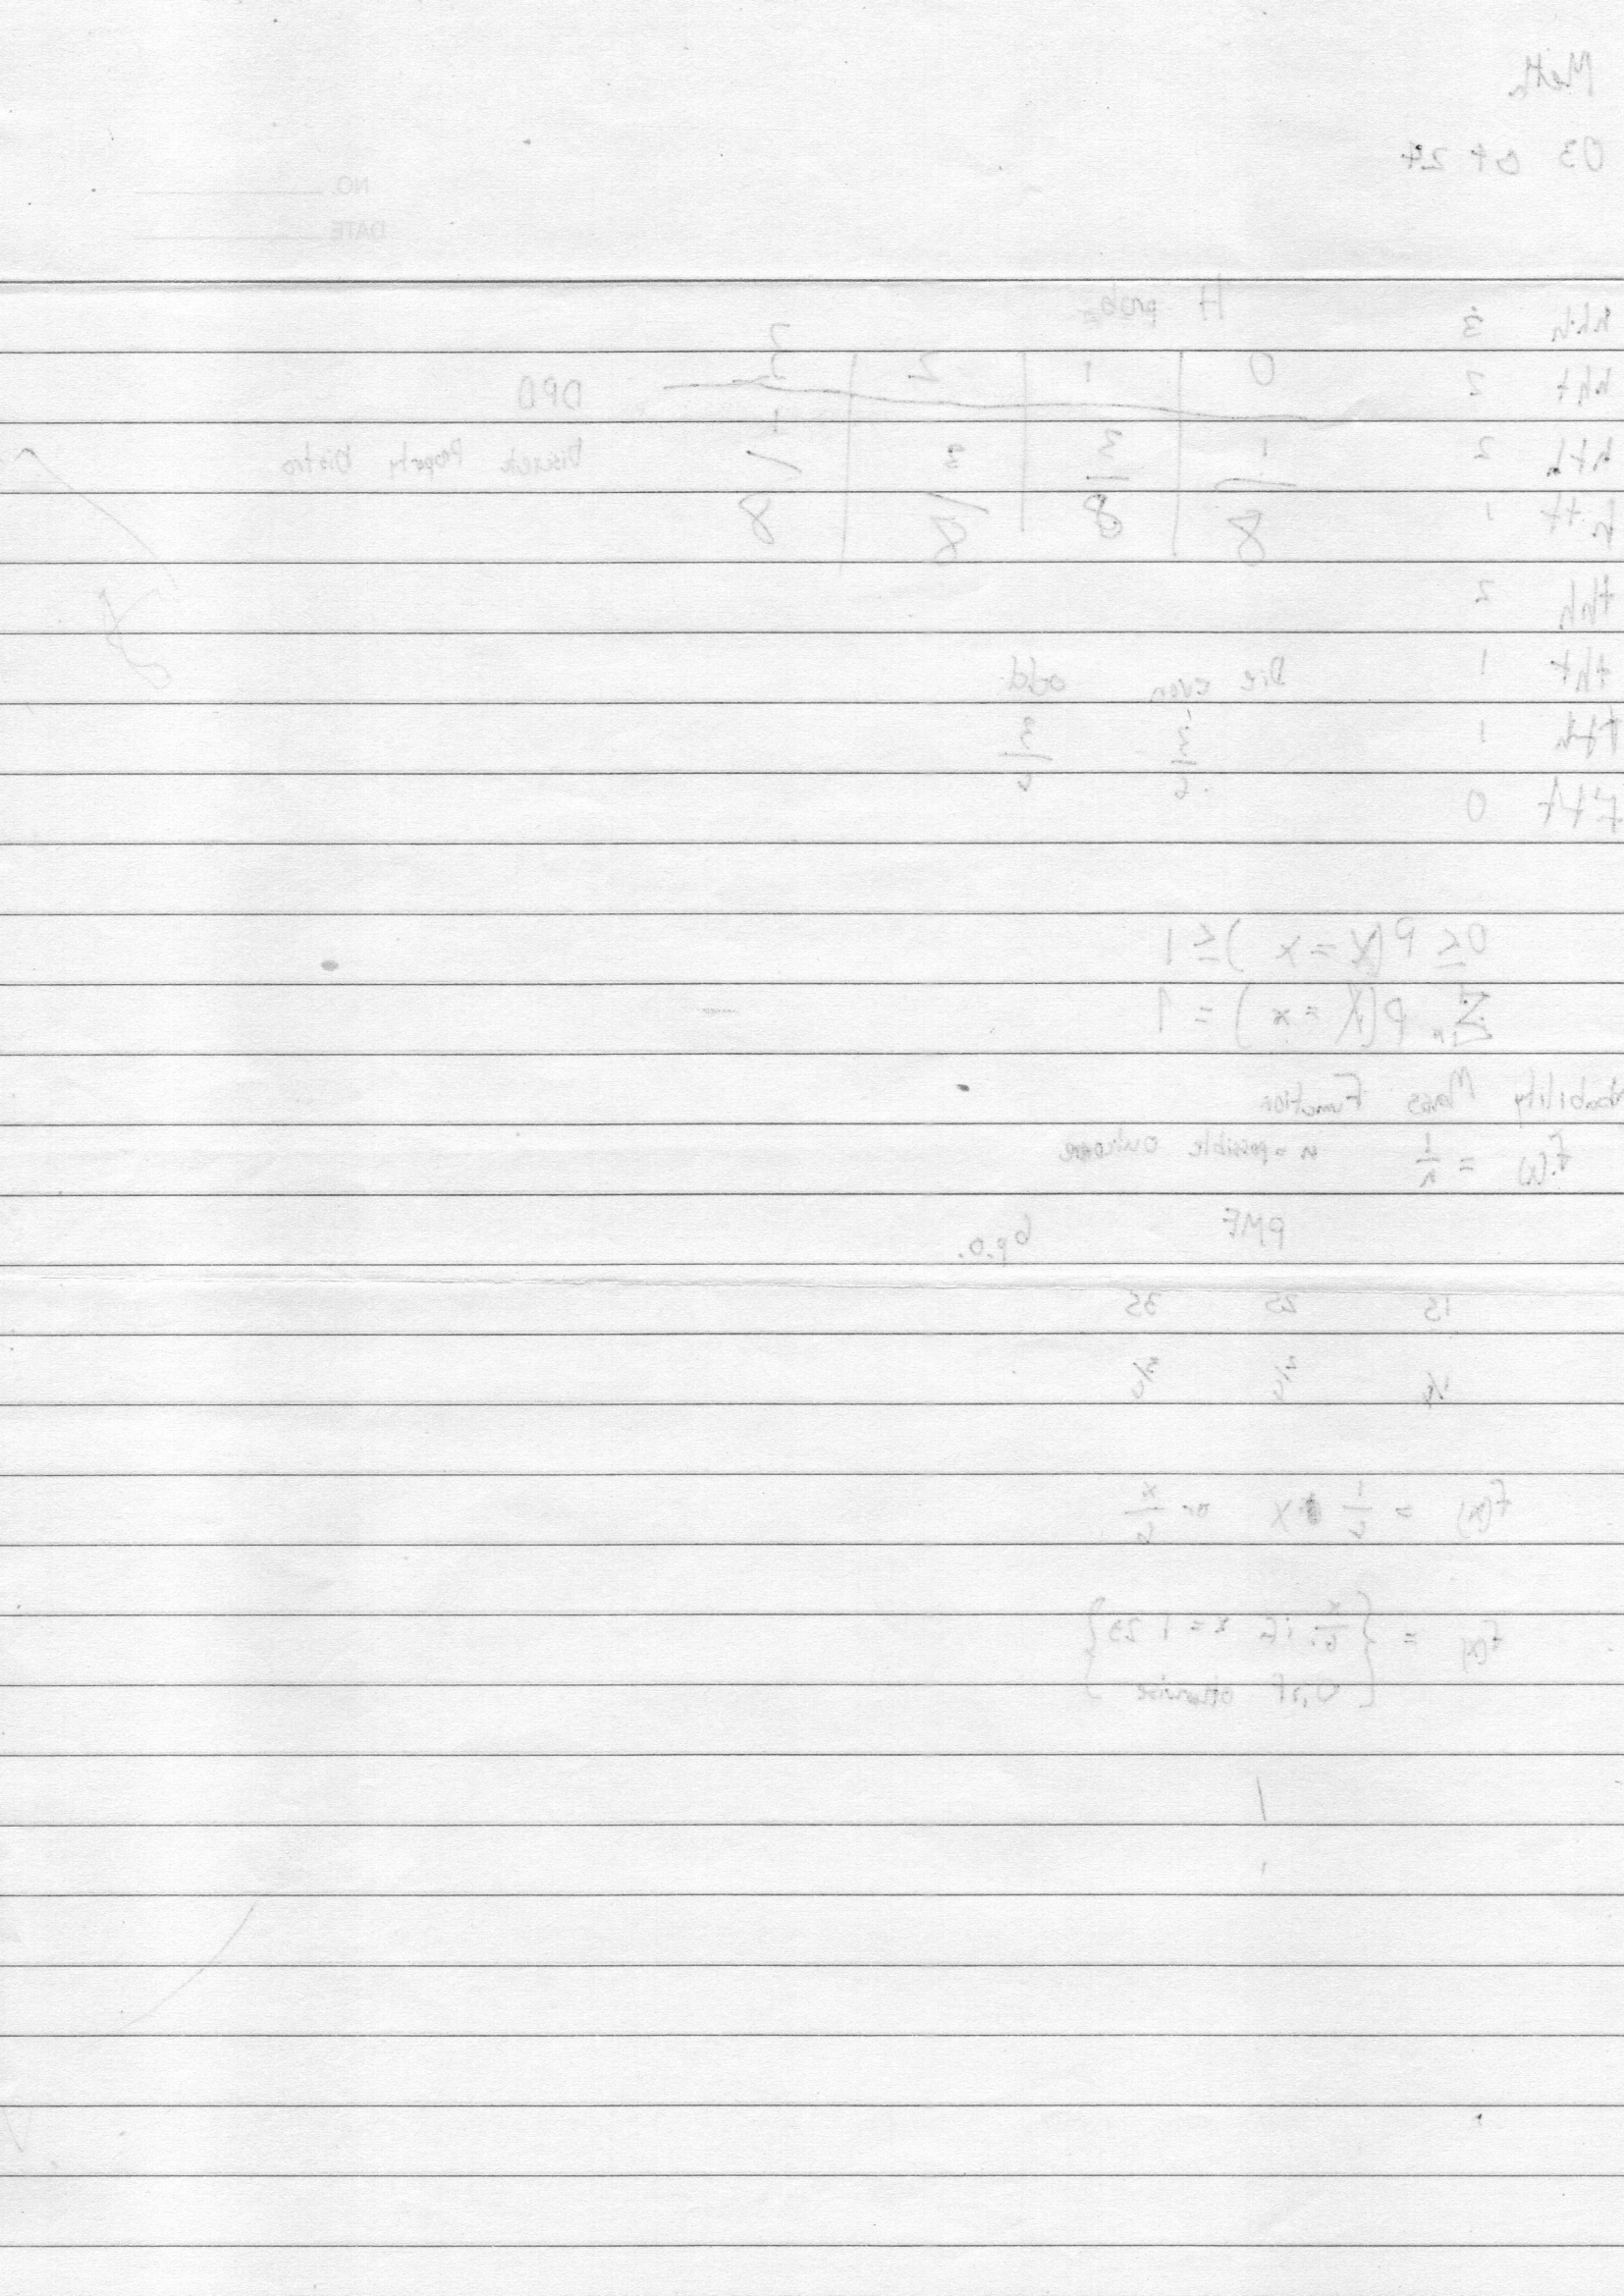 Math
03 24
NO.
DATE
H prob
hhh 3
hht 2
hth 2
htt 1
thh 2
tht 1
tth 1
ttt 0
0 1 2 3
1/8 3/8 3/8 1/8
DPD
Discrete Distro
Die even odd
3/6 3/6
0 ≤ P(X = x) ≤ 1
P(X = x) = 1
Mass Function
f(x) = 1/n n = possible outcome
PMF 6 p.o.
15 25 35
2/6 3/6
f(x) = 1/6 x or x/6
f(x) = { x/6 if x = 1 2 3 }
{ 0 if otherwise }